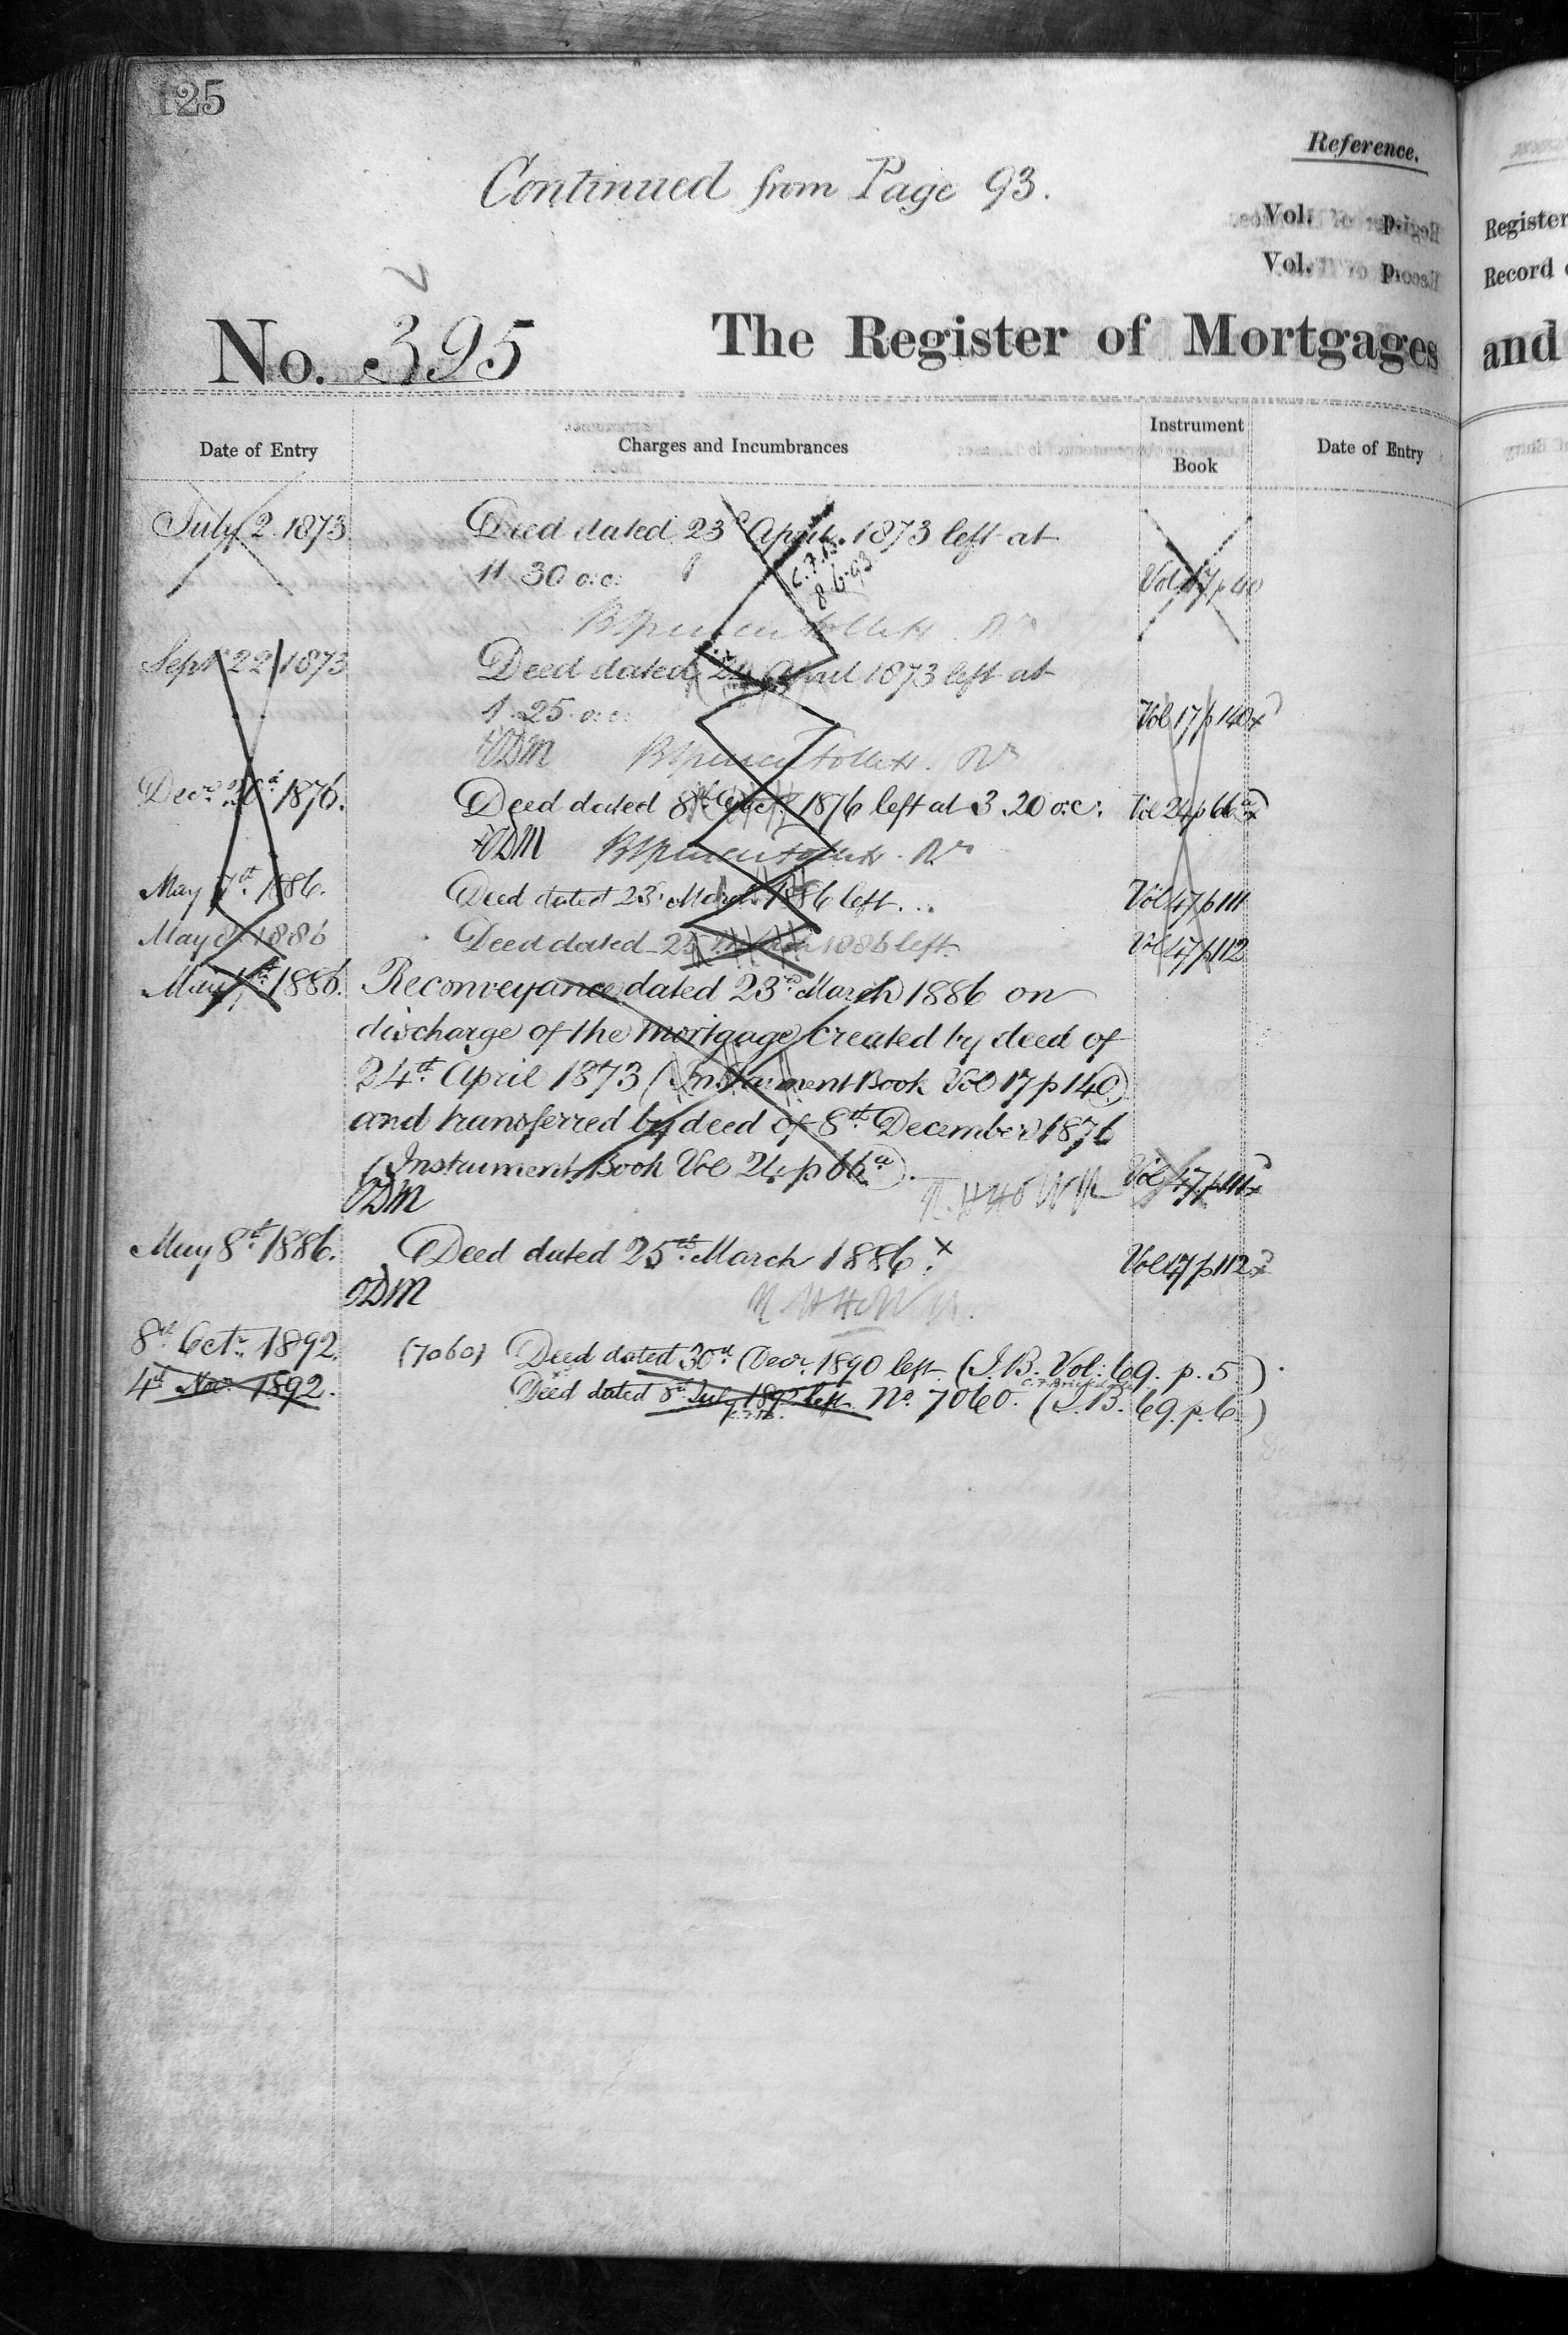 125
Continued from Page 93.
Reference.
Vol. p.
Vol. p.
No. 395
The Register of Mortgages
Date of Entry
Charges and Incumbrances
Instrument
Book
Date of Entry
July 2 1873
Deed dated 23d April 1873 left at
11 30 o:c:
C.F.B.
8.6.93
Vol 17 p 40
Septr 22 1873
Deed dated 24 April 1873 left at
1.25 o:c:
Vol 17 p 140
ODM
1876.
Deed dated 8th Decr 1876 left at 3.20 o:c:
Vol 24 p 66a
ODM
May 7th 1886.
Deed dated 23d March 1886 left...
Vol 47 p 111
May 8 1886
Deed dated 25 March 1886 left.
Vol 47 p 112
May 7th 1886.
Reconveyance dated 23d March 1886 on
discharge of the mortgage created by deed of
24th April 1873 (Instrument Book Vol 17 p 140)
and transferred by deed of 8th December 1876
(Instrument Book Vol 24 p 66a).
Vol 47 p 111
ODM
May 8th 1886.
Deed dated 25th March 1886. x
Vol 47 p 112
ODM
8th Octr 1892.
(7060) Deed dated 30th Decr 1890 left (I.B. Vol: 69. p. 5.)
4th Novr 1892.
Deed dated 8th July 1892 left No. 7060. (I.B. 69. p. 6.)
C.F.B.
Register
Record
and